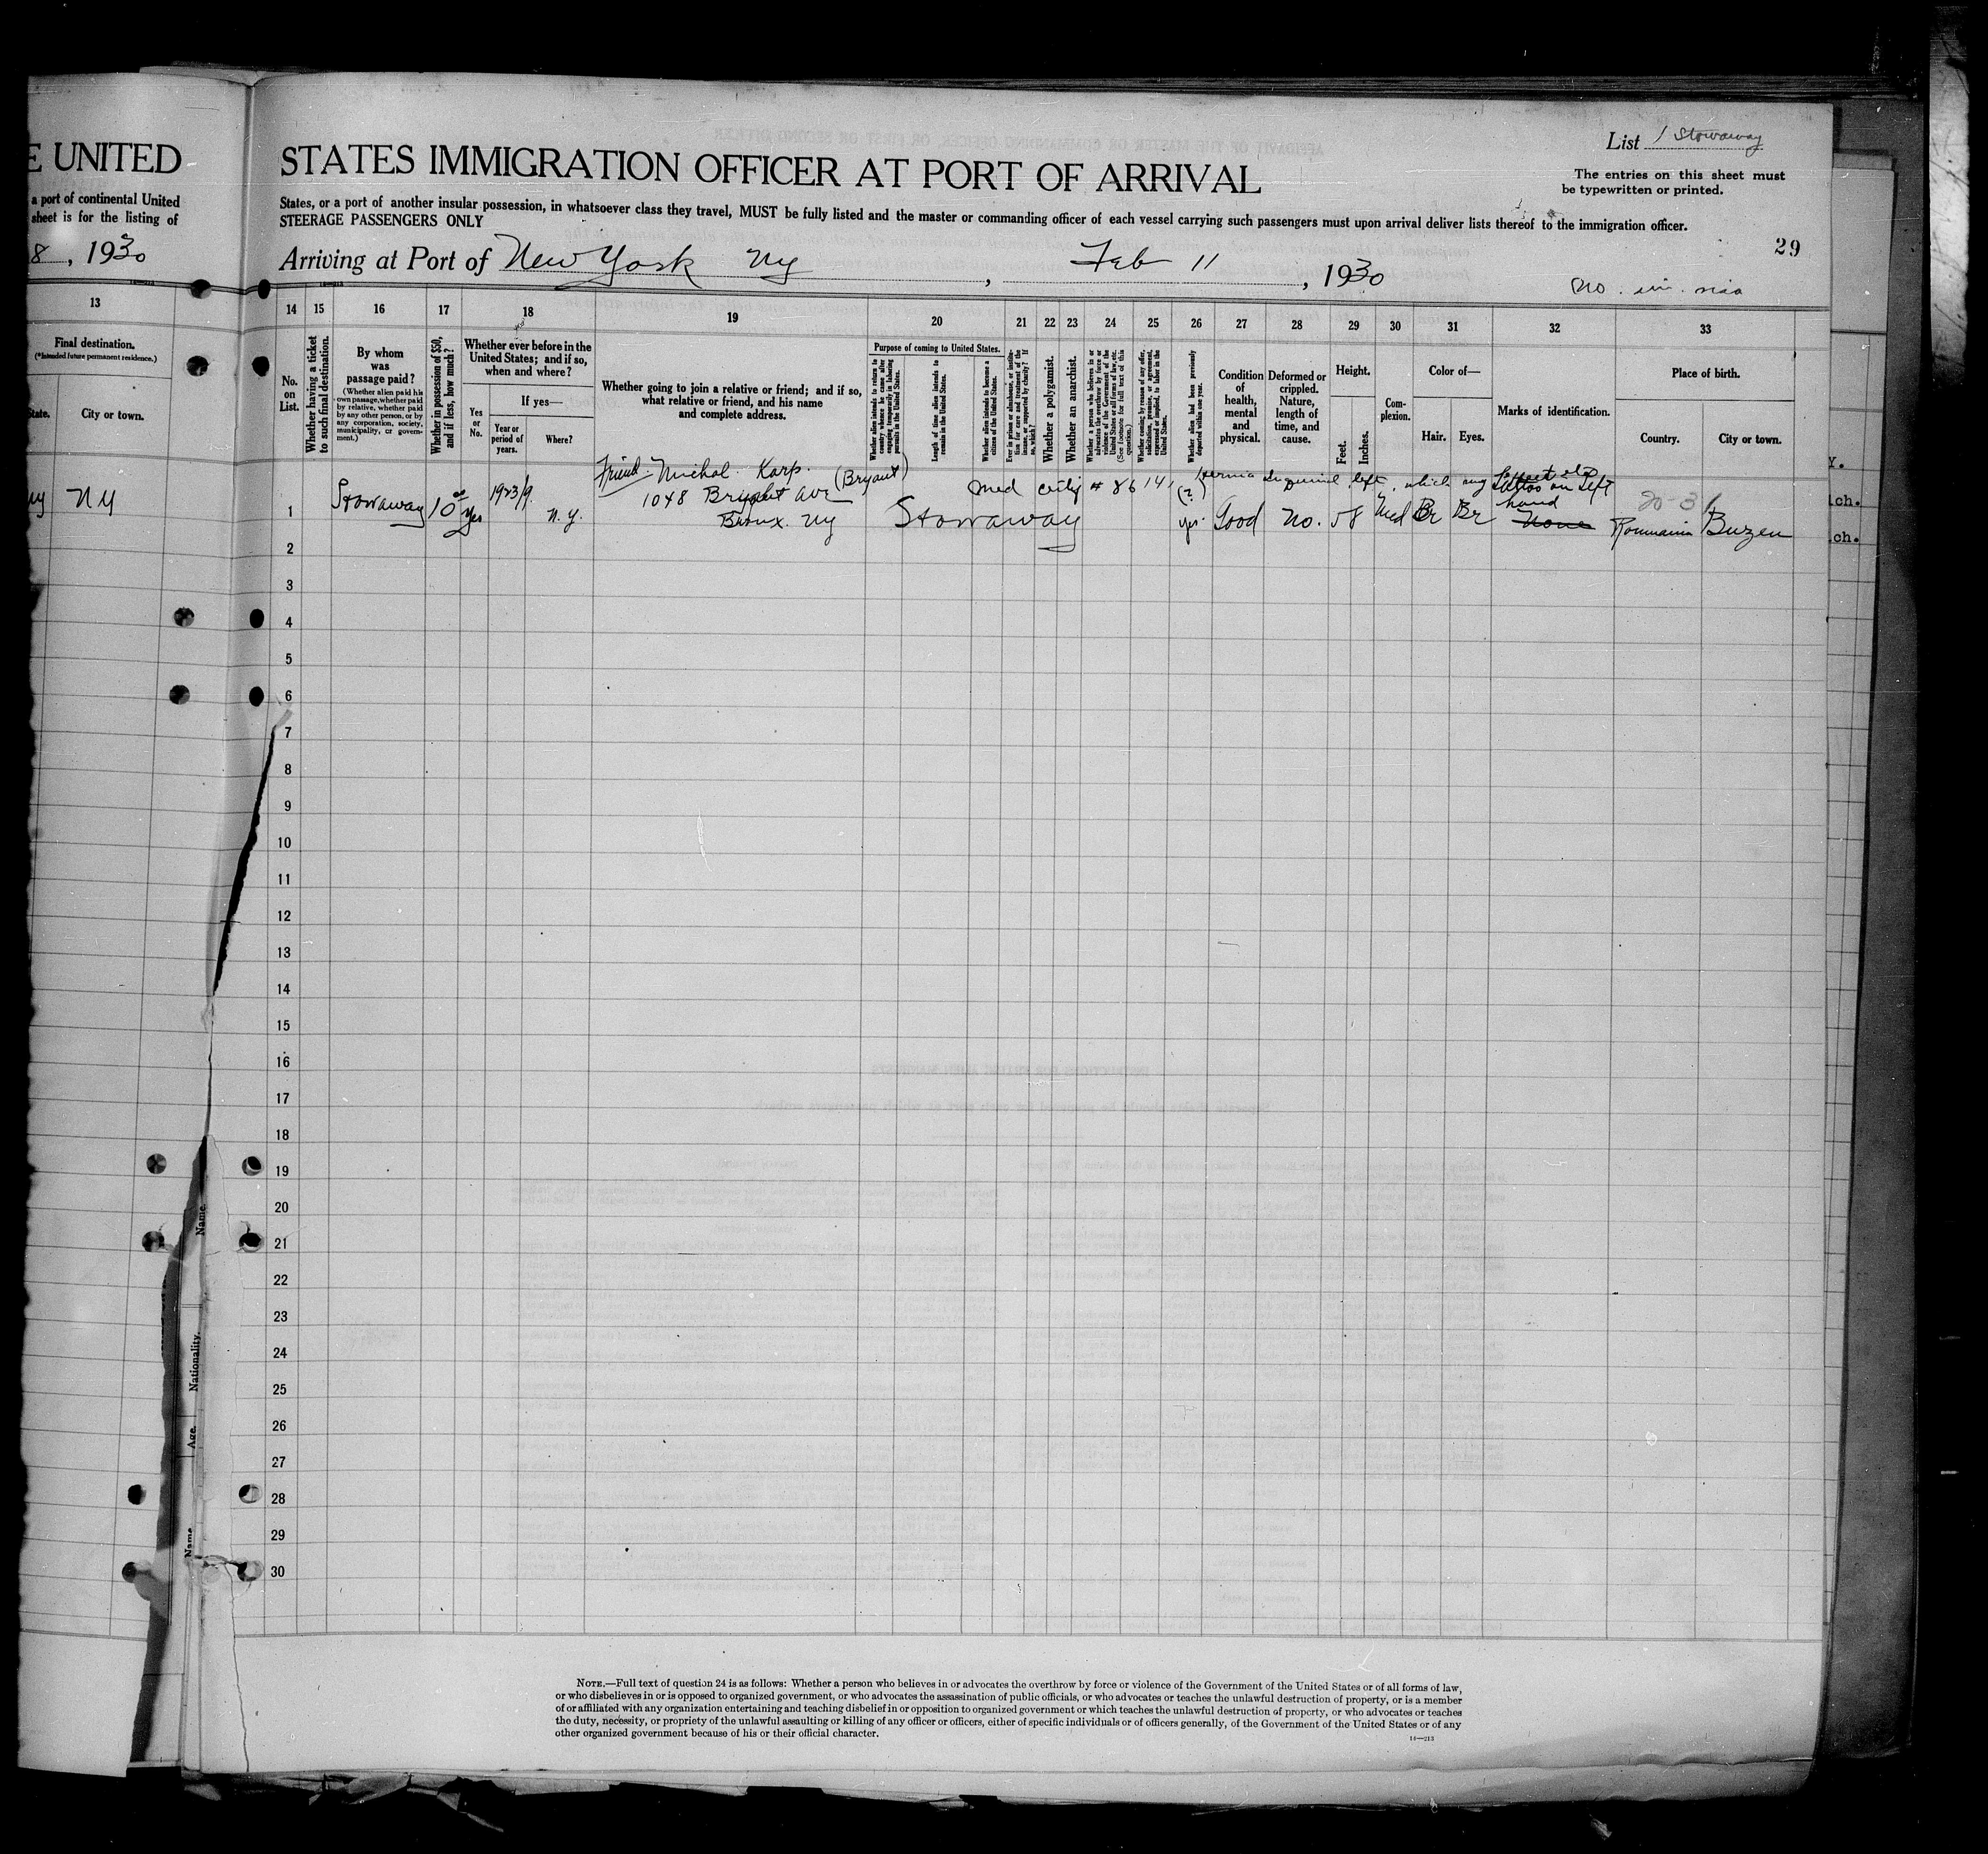 E UNITED
a port of continental United
sheet is for the listing of
8, 1930
13
Final destination.
(*Intended future permanent residence.)
State.
City or town.
ny
NY
List 1 Stowaway
STATES IMMIGRATION OFFICER AT PORT OF ARRIVAL
The entries on this sheet must
be typewritten or printed.
States, or a port of another insular possession, in whatsoever class they travel, MUST be fully listed and the master or commanding officer of each vessel carrying such passengers must upon arrival deliver lists thereof to the immigration officer.
STEERAGE PASSENGERS ONLY
29
Arriving at Port of New York NY, Feb 11, 1930
14 15 16 17 18 19 20 21 22 23 24 25 26 27 28 29 30 31 32 33
No. on List.
Whether having a ticket to such final destination.
By whom was passage paid?
(Whether alien paid his own passage, whether paid by relative, whether paid by any other person, or by any corporation, society, municipality, or government.)
Whether in possession of $50, and if less, how much?
Whether ever before in the United States; and if so, when and where?
Yes or No.
If yes—
Year or period of years.
Where?
Whether going to join a relative or friend; and if so, what relative or friend, and his name and complete address.
Purpose of coming to United States.
Whether alien intends to return to country whence he came after engaging temporarily in laboring pursuits in the United States.
Length of time alien intends to remain in the United States.
Whether alien intends to become a citizen of the United States.
Ever in prison or almshouse, or institution for care and treatment of the insane, or supported by charity? If so, which?
Whether a polygamist.
Whether an anarchist.
Whether a person who believes in or advocates the overthrow by force or violence of the Government of the United States or all forms of law, etc. (See footnote for full text of this question.)
Whether coming by reason of any offer, solicitation, promise, or agreement, expressed or implied, to labor in the United States.
Whether alien had been previously deported within one year.
Condition of health, mental and physical.
Deformed or crippled. Nature, length of time, and cause.
Height.
Feet.
Inches.
Complexion.
Color of—
Hair.
Eyes.
Marks of identification.
Place of birth.
Country.
City or town.
Friend Michal Karp. (Bryant)
1048 Bryant Ave
Bronx. NY
1 Stowaway 10 00 Yes 1923/9 N.Y.
Med certif # 86141
hernia inguinal left, which may affect
Stowaway
(?) yes Good No. 5 8 Med Br Br
Tattoo on left
hand
None
20-31
Roumania Buzen
2
3
4
5
6
7
8
9
10
11
12
13
14
15
16
17
18
19
20
21
22
23
24
25
26
27
28
29
30
Name.
Nationality.
Age.
Name
Y.
ich.
ch.
NOTE.—Full text of question 24 is as follows: Whether a person who believes in or advocates the overthrow by force or violence of the Government of the United States or of all forms of law,
or who disbelieves in or is opposed to organized government, or who advocates the assassination of public officials, or who advocates or teaches the unlawful destruction of property, or is a member
of or affiliated with any organization entertaining and teaching disbelief in or opposition to organized government or which teaches the unlawful destruction of property, or who advocates or teaches
the duty, necessity, or propriety of the unlawful assaulting or killing of any officer or officers, either of specific individuals or of officers generally, of the Government of the United States or of any
other organized government because of his or their official character.
14—213